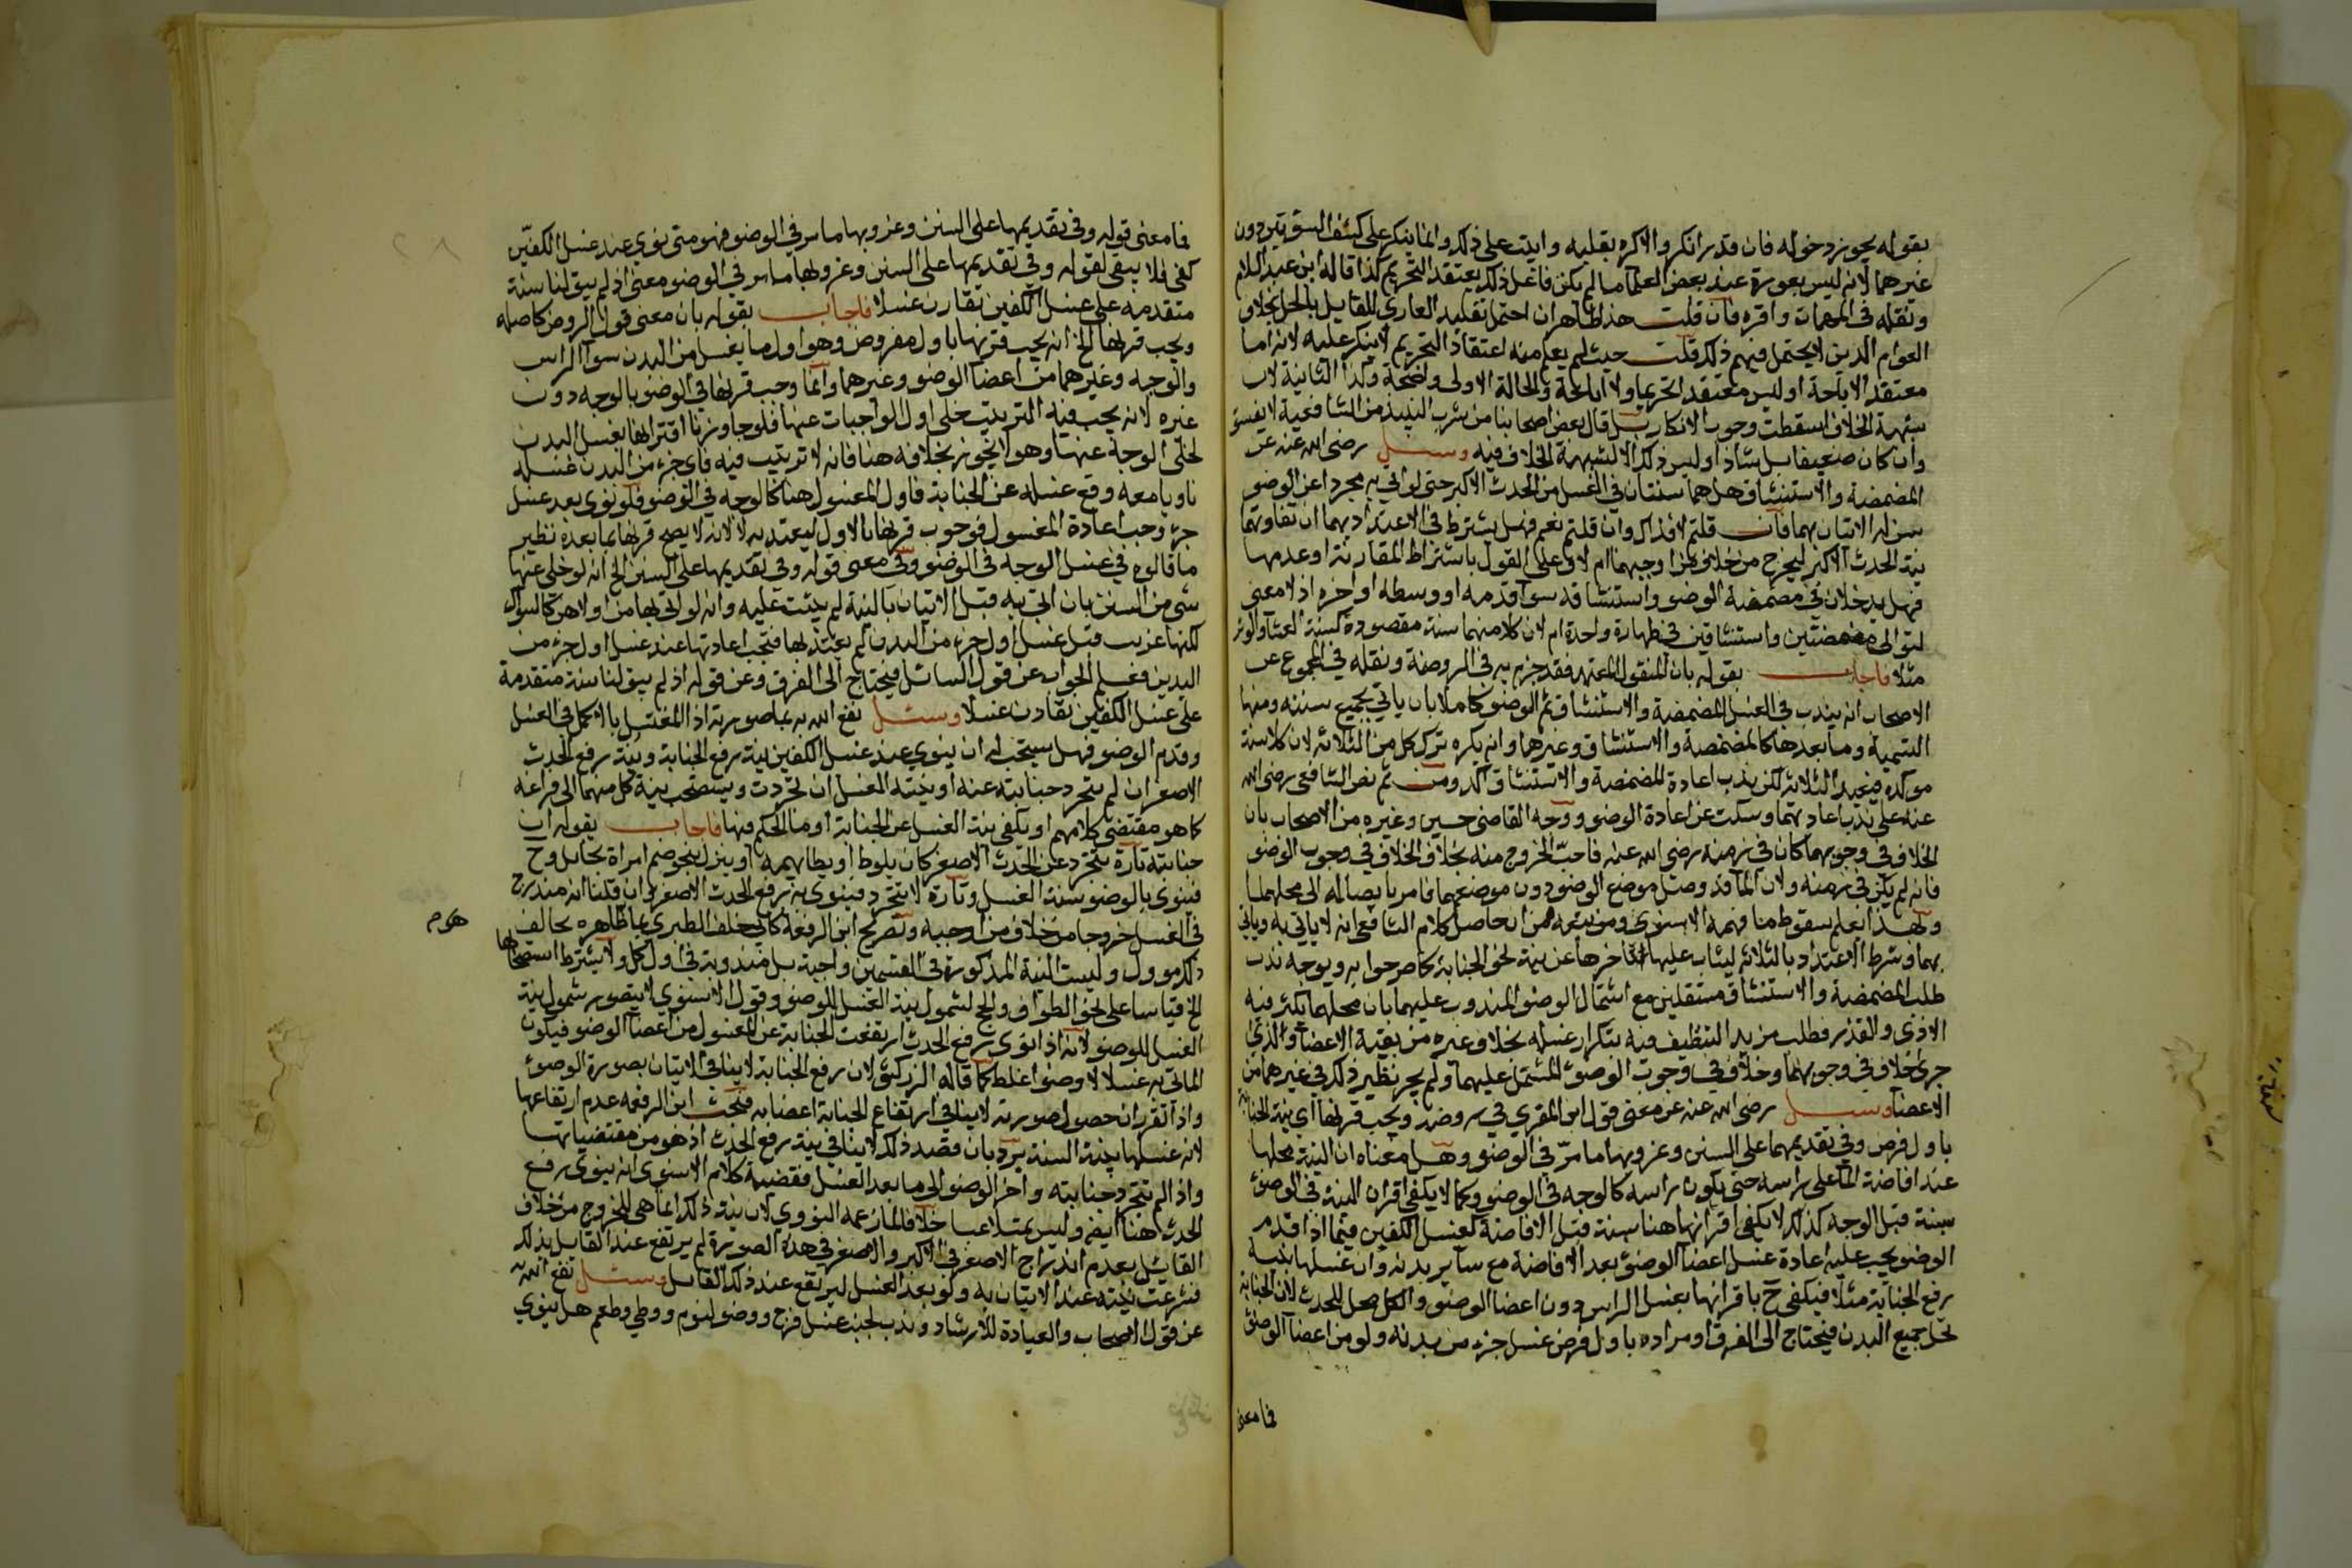 بقوله يجوز دخوله فان قدر انكر والا كره بقلبه وايت على ذلك وانما ينكر على كشف السوءتين دون
غيرهما لانه ليس بعورة عند بعض العلما ما لم يكن فاعل ذلك يعتقد التحريم كذا قاله ابن عبد السلام
ونقله في المهمات واقره فان قلت هذا ظاهر ان احتمل تقليد العاري للقايل بالحل بخلاف
العوام الذين لا يحتمل فيهم ذلك قلت حيث لم يعلم منه اعتقاد التحريم لا ينكر عليه لانه اما
معتقد الاباحة او ليس معتقد التحريم ولا اباحة والحالة الاولى واضحة وكذا الثانية لان
شبهة الخلاف اسقطت وجوب الانكار بل قال بعض اصحابنا من شرب النبيذ من الشافعية لا يفسق
وان كان ضعيفا بل شاذا وليس ذلك الا لشبهة الخلاف فيه وسئل رضى الله عنه عن
المضمضة والاستنشاق هل هما سنتان في الغسل من الحدث الاكبر حتى لو اتى به مجردا عن الوضو
سن له الاتيان بهما فان قلتم لا فذاك وان قلتم نعم فهل يشترط في الاعتداد بهما ان تفاوتهما
نية الحدث الاكبر ليخرج من خلاف من اوجبهما ام لا وعلى القول باشتراط المقارنة او عدمها
فهل يدخلان في مضمضة الوضو واستنشاقه سوا قدمه او وسطه او اخره اذ لا معنى
لتوالى مضمضتين واستنشاقين في طهارة واحدة ام لا لان كلا منهما سنة مقصودة كسنة العشا والوتر
مثلا فاجاب بقوله بان المنقول المعتمد فقد جزم به في الروضة ونقله في المجموع عن
الاصحاب انه يندب في الغسل المضمضة والاستنشاق ثم الوضو كاملا بان ياتي بجميع سننه ومنها
التسمية وما بعدها كالمضمضة والاستنشاق وغيرهما وانه يكره ترك كل من الثلاثة لان كلا سنة
موكده فيعيد الثلاثة لكن ندب اعادة المضمضة والاستنشاق اكد ومن ثم نص الشافعي رضى الله
عنه على ندب اعادتهما وسكت عن اعادة الوضو ووجه القاضى حسين وغيره من الاصحاب بان
الخلاف في وجوبهما كان في زمنه رضى الله عنه فاحب الخروج منه بخلاف الخلاف في وجوب الوضو
فانه لم يكن في زمنه ولان الما قد وصل موضع الوضو دون موضعهما فامر بايصاله الى محلهما
وبهذا يعلم سقوط ما فهمه الاسنوى ومن تبعه من ان حاصل كلام الشافعى انه لا ياتي به وياتي
بهما وشرط الاعتداد بالثلاثة ليثاب عليها تاخرها عن نية نحو الجنابة كما صرحوا به ويوجه ندب
طلب المضمضة والاستنشاق مستقلين مع اشتمال الوضو المندوب عليهما بان محلهما يكثر فيه
الاذى والقذر فطلب مزيد التنظيف فيه بتكرار غسله بخلاف غيره من بقية الاعضا والذي
جرى خلاف في وجوبهما وخلاف في وجوب الوضو المشتمل عليهما ولم يجر نظير ذلك في غيرهما من
الاعضا وسئل رضى الله عنه عن معنى قول ابن المقري في روضه ويجب قرنها اي نية الجنابة
باول فرض وفي تقديمهما على السنن وعزوبها ما مر في الوضو وهل معناه ان النية محلها
عند افاضة الما على راسه حتى يكون راسه كالوجه في الوضو وكما لا يكفي اقران النية في الوضو
بسنة قبل الوجه كذلك لا يكفي اقترانها هنا بسنة قبل الافاضة كغسل الكفين فيما اذا قدم
الوضو يجب عليه اعادة غسل اعضا الوضو بعد الافاضة مع ساير بدنه وان غسلها بنية
رفع الجنابة مثلا فيكفي ح باقرانها بغسل الراس دون اعضا الوضو والكل محل للحدث لان الجنابة
تحل جميع البدن فيحتاج الى الفرق او مراده باول فرض غسل جزء من بدنه ولو من اعضا الوضو
فما معنى
فما معنى قوله وفي تقديمها على السنن وعزوبها ما مر في الوضو فهو متى نوى عند غسل الكفين
كفى فلا يبقى لقوله وفي تقديمها على السنن وعزوبها ما مر في الوضو معنى اذ لم يبق لنا سنة
متقدمه على غسل الكفين تقارن غسلا فاجاب بقوله بان معنى قول الروض كاصله
ويجب قرنها الخ انه يجب قرنها باول مفروض وهو اول ما يغسل من البدن سوا الراس
والوجه وغيرهما من اعضا الوضو وغيرهما وانما وجب قرنها في الوضو بالوجه دون
غيره لانه يجب فيه الترتيب خلى اول الواجبات عنها فلو جاوزنا اقترانها بغسل اليدين
لخلى الوجه عنها وهو لا يجوز بخلافه هنا فانه لا ترتيب فيه فاي جزء من البدن غسله
ناويا معه وقع غسله عن الجنابة فاول المغسول هنا كالوجه في الوضو فلو نوى بعد غسل
جزء وجب اعادة المغسول فوجوب قرنها بالاول ليعتد به لا لانه لا يصح قرنها بما بعده نظير
ما قالوه في غسل الوجه في الوضو وفي معنى قوله وفي تقديمها على السنن الخ انه لو خلى عنها
شي من السنن بان اتى به قبل الاتيان بالنية لم يثب عليه وانه لو اتى بها من اولاهن كالسواك
لكنها عزبت قبل غسل اول جزء من البدن لم يعتد بها فتجب اعادتها عند غسل اول جزء من
البدن فعلم الجواب عن قول السائل فيحتاج الى الفرق وعن قوله اذ لم يبق لنا سنة متقدمة
على غسل الكفين تقارن غسلا وسئل نفع الله به بما صورته اذا المغتسل بالاكمل في الغسل
وقدم الوضو فهل يستحب له ان ينوي عند غسل الكفين نية رفع الجنابة ونية رفع الحدث
الاصغر ان لم يتجرد جنابته عنه او نية الغسل ان تجردت ويستصحب نية كل منهما الى فراغه
كما هو مقتضى كلامهم او يكفي نية الغسل عن الجنابة او ما الحكم فيها فاجاب بقوله ان
جنابته تارة تتجرد عن الحدث الاصغر كان يلوط او يطا بهيمة او ينزل بنحو ضم امراة بحايل وح
فينوى بالوضو سنة الغسل وتارة لا تتجرد فينوى به رفع الحدث الاصغر وان قلنا انه مندرج
في الغسل خروجا من خلاف من اوجبه وتصريح ابن الرفعة كابي خلف الطبري بما ظاهره يخالف
ذلك موول وليست النية المذكورة في القسمين واجبة بل مندوبة في اول كل ولا يشترط استصحابها
الخ قياسا على نحو الطواف والحج لشمول نية الغسل للوضو وقول الاسنوي لا يتصور شمول نية
الغسل للوضو لانه اذا نوى رفع الحدث ارتفعت الجنابة عن المغسول من اعضا الوضو فيكون
الماتى به غسلا لا وضوا غلط كما قاله الزركشى لان رفع الجنابة لا ينافي الاتيان بصورة الوضوء
واذا تقرر ان حصول صورته لا ينافي ارتفاع الجنابة اعضا به فبحث ابن الرفعه عدم ارتفاعها
لانه غسلها بنية السنة يرد بان قصد ذلك لا ينافي نية رفع الحدث اذ هو من مقتضياتها
واذا لم تتجرد جنابته واخر الوضو الى ما بعد الغسل فقضية كلام الاسنوى انه ينوى رفع
الحدث هنا ايضا وليس متلاعبا خلافا لما زعمه النووي لان نية ذلك انما هي للخروج من خلاف
القائل بعدم اندراج الاصغر في الاكبر والاصغر في هذه الصورة لم يرتفع عند القايل بذلك
فشرعت نيته عند الاتيان به ولو بعد الغسل ليرتفع عند ذلك القايل وسئل نفع الله به
عن قول الاصحاب والعيادة للارشاد وندب لجنب غسل فرج ووضو لنوم ووطي وطعم هل ينوي